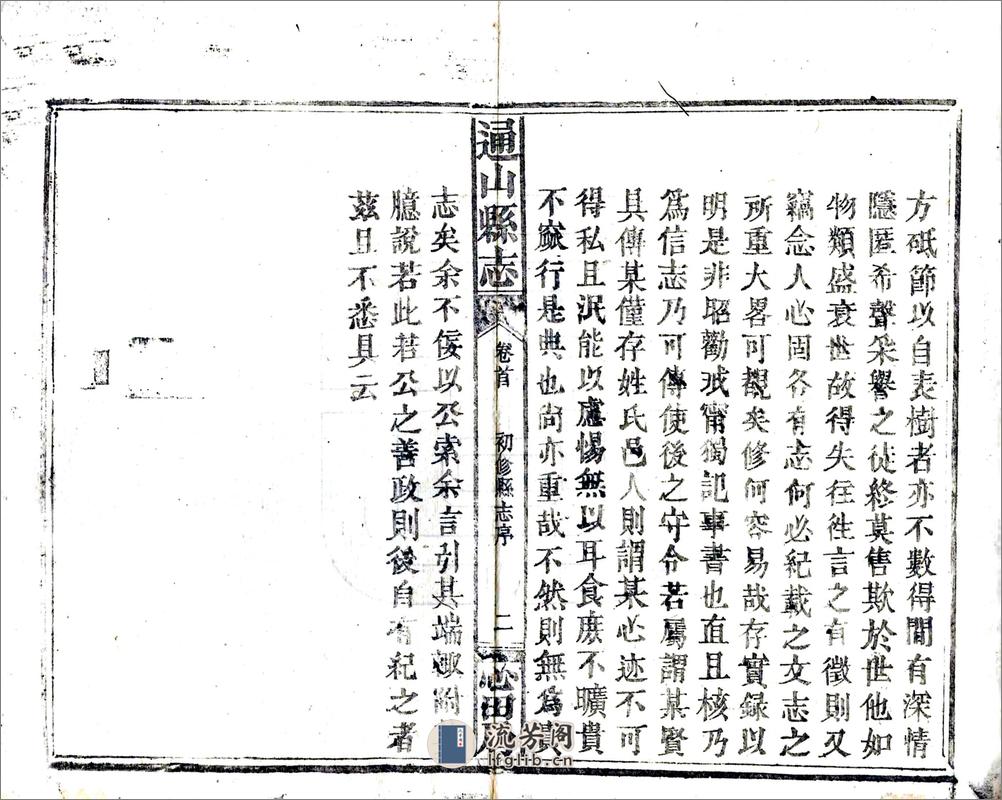 方砥節以自表樹者亦不數得間有深情
隱匿希聲采譽之徒終莫售欺於世他如
物類盛衰世故得失往徃言之有徵則又
竊念人必固各有志何必紀載之文志之
所重大畧可觀矣修何容易哉存實録以
明是非昭勸戒甯獨記事書也直且核乃
爲信志乃可傳使後之守令若屬謂某賢
具傳某僅存姓氏邑人則謂某必迹不可
得私且泯能以慮惕無以耳食庶不曠貴
不窳行是典也尚亦重哉不然則無爲貴
通山縣志
卷首
初修縣志序
二
心田
志矣余不佞以公索余言引其端輙附
臆說若此若公之善政則後自有紀之者
茲且不悉具云
流芳阁
lfglib.cn